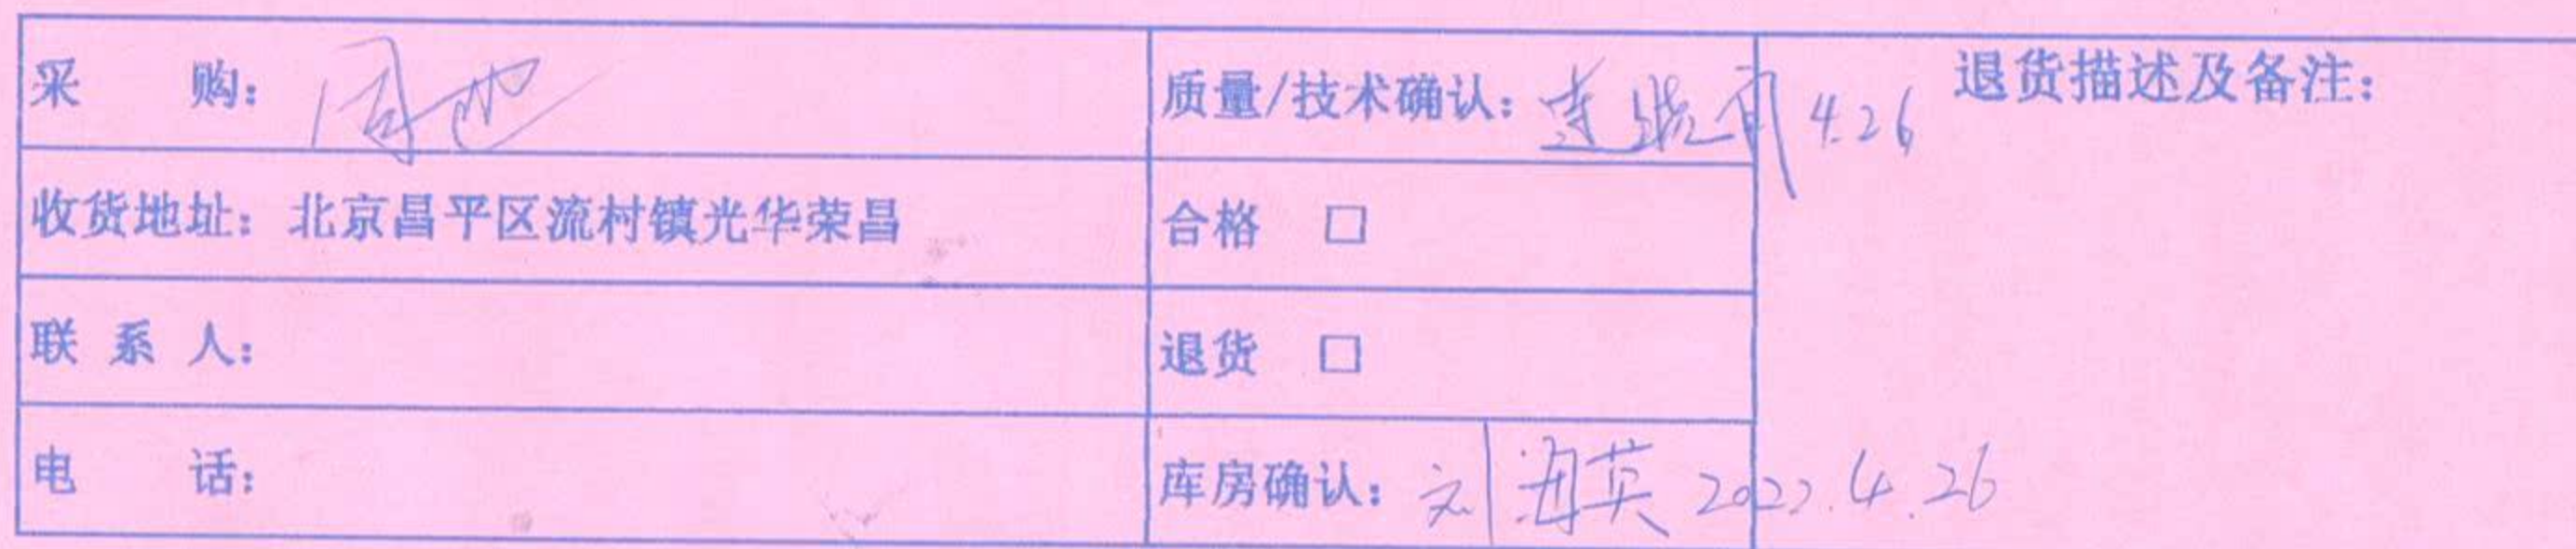 采 购:
质量/技术确认: 4.26
退货描述及备注:
收货地址: 北京昌平区流村镇光华荣昌
合格 □
联 系 人:
退货 □
电 话:
库房确认: 刘海英 2022.4.26